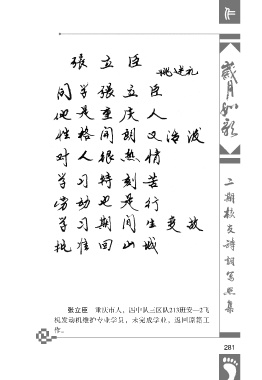 张立臣
姚建礼
同学张立臣
他是重庆人
性格开朗又活波
对人很热情
学习特刻苦
劳动也是行
学习期间生变故
批准回山城
张立臣 重庆市人，四中队三区队213班安—2飞
机发动机维护专业学员，未完成学业，返回原籍工
作。
岁月如歌
二期校友诗词写照集
281